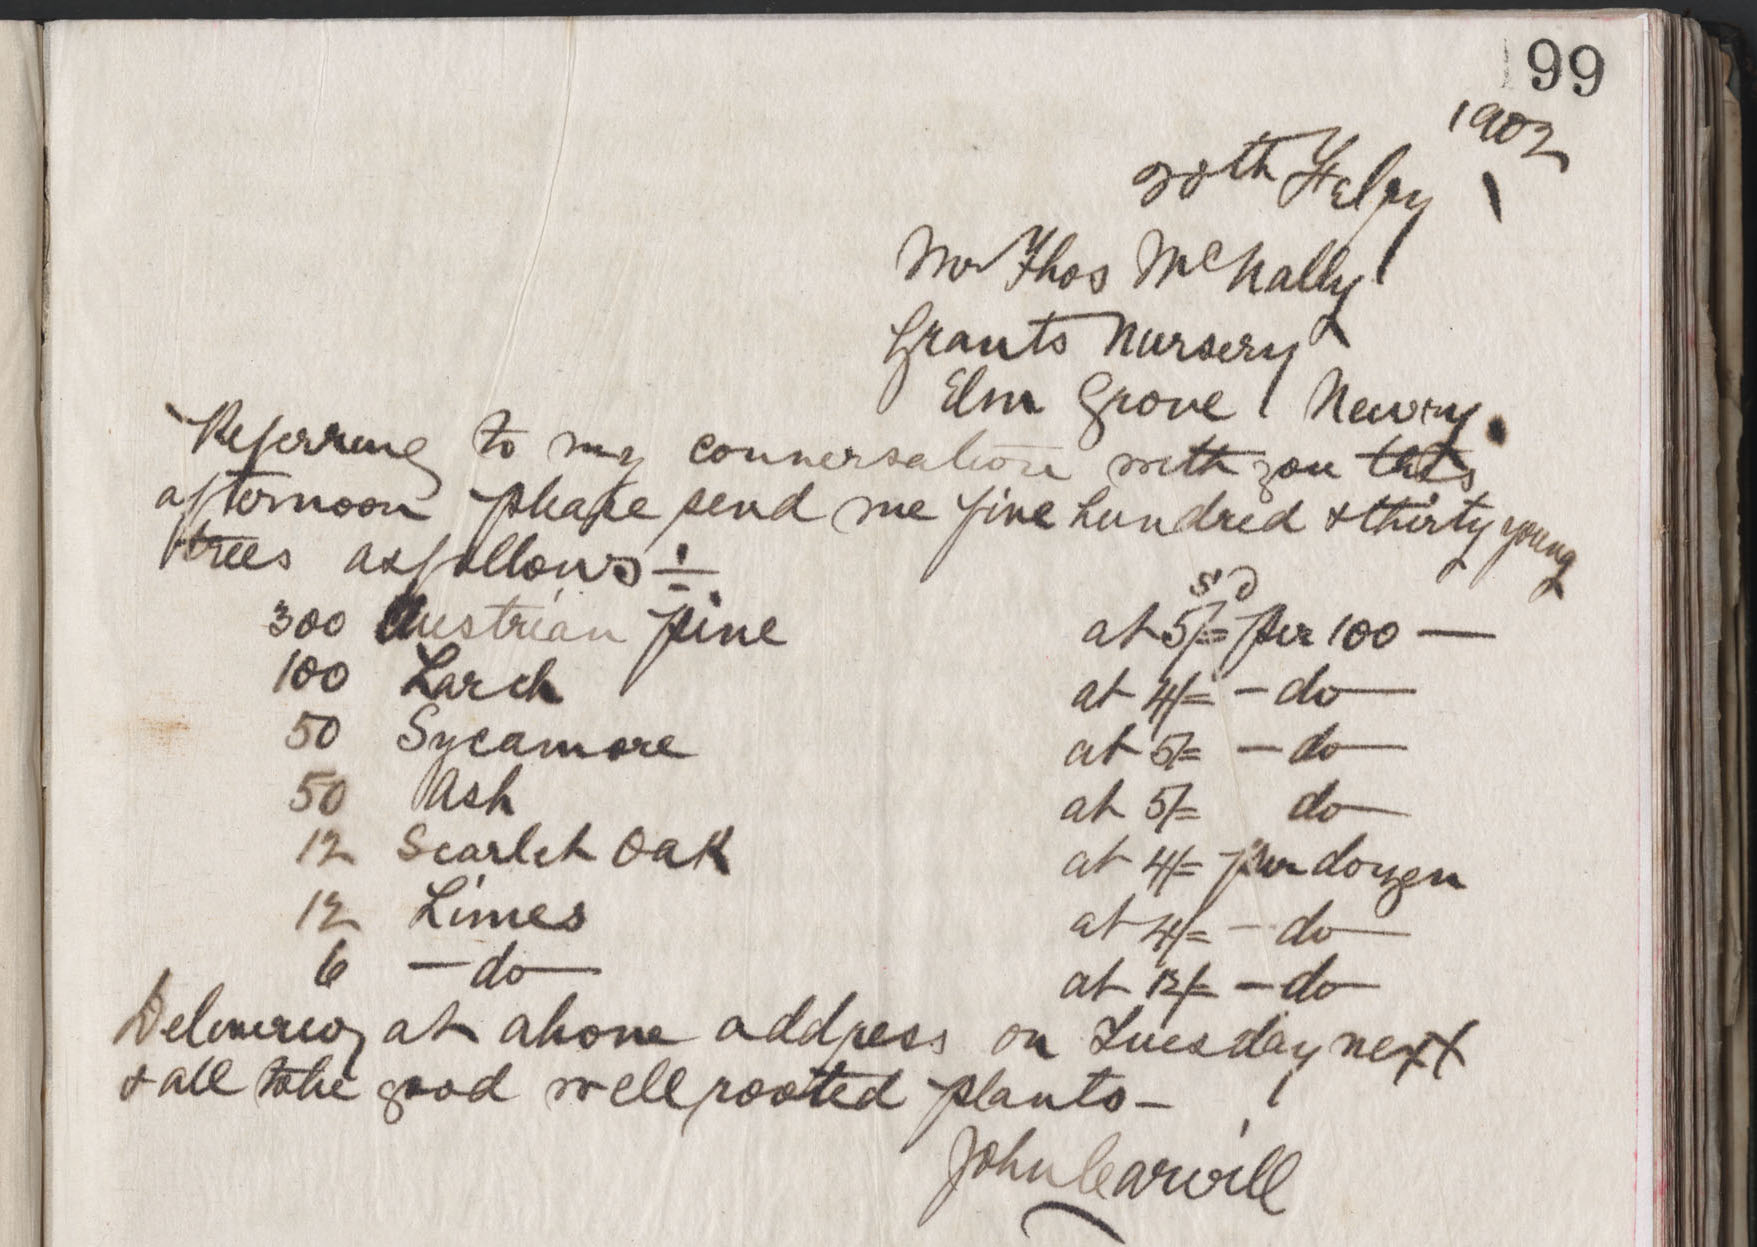 99
1902
20th Feby
Mr Thos McNally
Grants Nursery
Elm Grove Newry.
Referring to my conversation with you this
afternoon please send me five hundred & thirty young
trees as follows ÷
s d
300 Austrian pine at 5/= per 100 —
100 Larch at 4/= — do —
50 Sycamore at 5/= — do —
50 Ash at 5/= do —
12 Scarlet Oak at 4/= per dozen
12 Limes at 4/= — do —
6 — do — at 12/= — do —
Delivery at above address on Tuesday next
& all to be good well rooted plants —
John Carvill